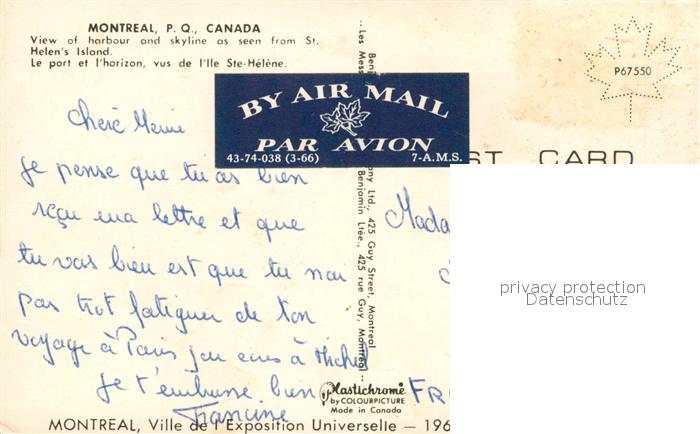 MONTREAL, P. Q., CANADA
View of harbour and skyline as seen from St.
Helen's Island.
Le port et l'horizon, vus de l'Ile Ste-Hélène.
P67550
BY AIR MAIL
PAR AVION
43-74-038 (3-66) 7-A.M.S.
CARD
Chère Mémé
je pense que tu as bien
reçu ma lettre et que
tu vas bien est que tu nai
pas trot fatiguer de ton
voyage à Paris
à Michel
je t'embrasse bien
Francine
Mada
FR
Benj
Les Mess
ny Ltd., 425 Guy Street, Montreal
Benjamin Ltée., 425 rue Guy, Montreal
privacy protection
Datenschutz
Plastichrome
by COLOURPICTURE
Made in Canada
MONTREAL, Ville de l'Exposition Universelle — 196